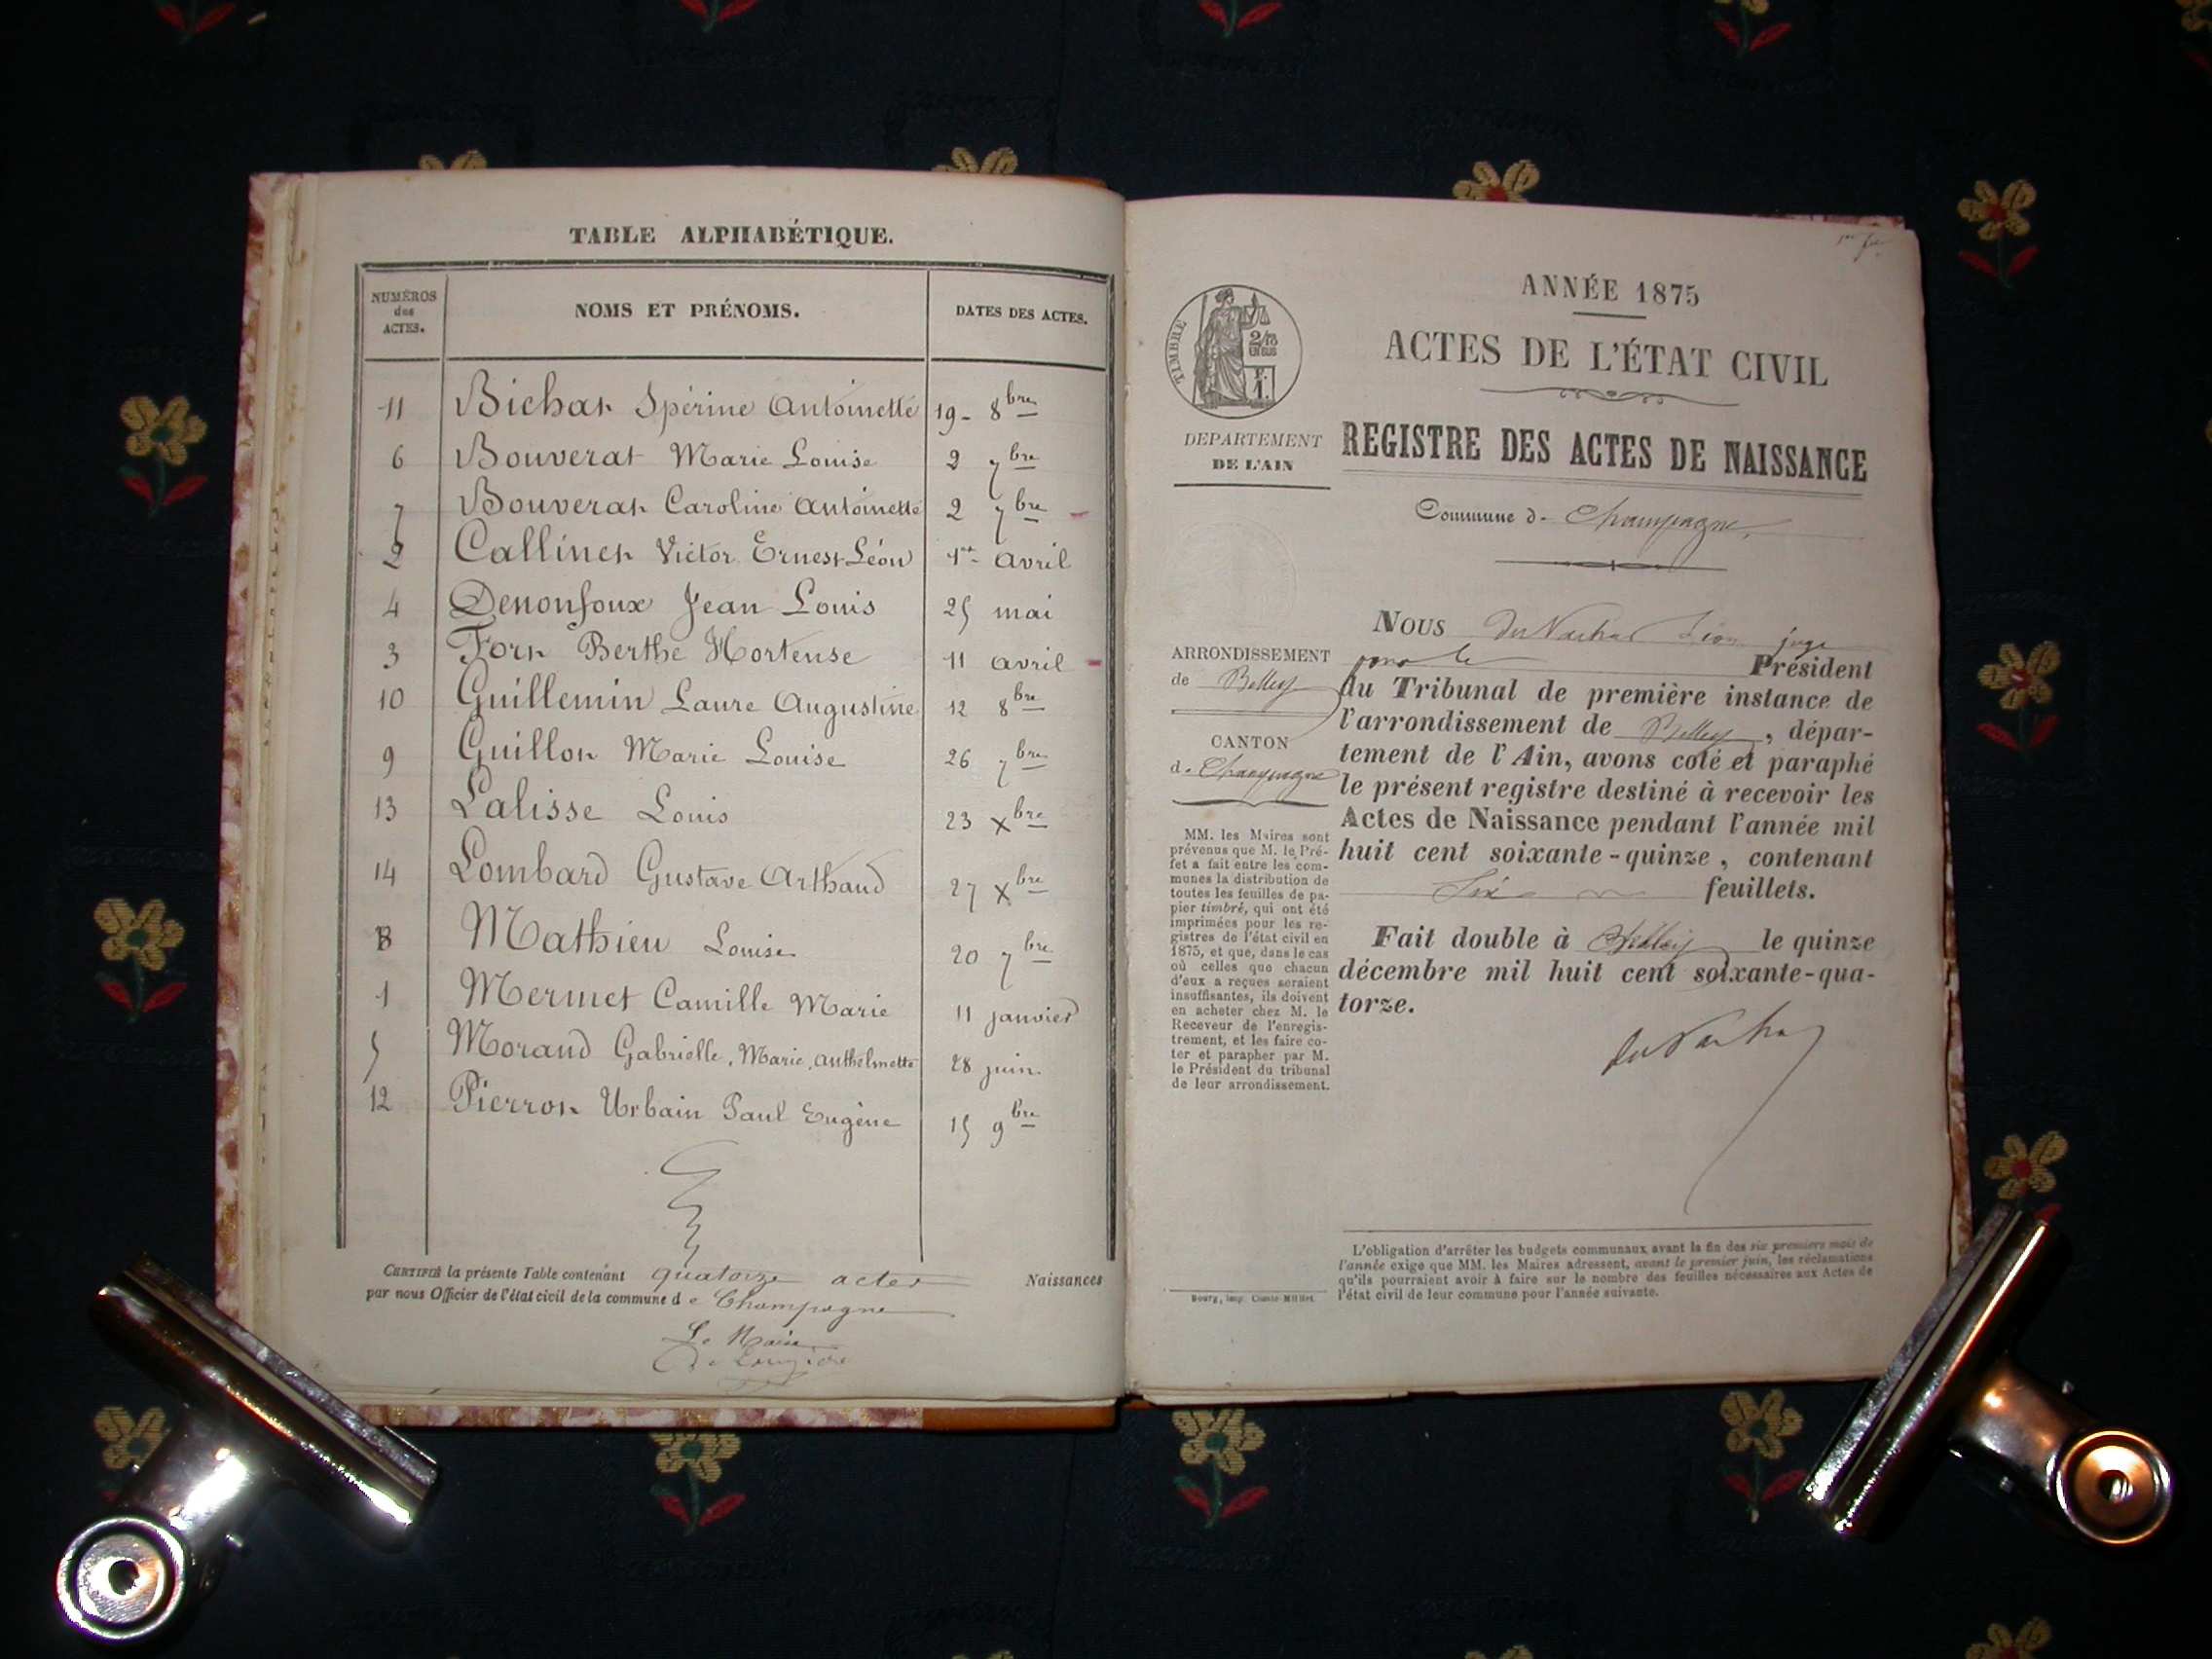 TABLE ALPHABÉTIQUE.
NUMÉROS des ACTES. NOMS ET PRÉNOMS. DATES DES ACTES.
11 Bichat Spérine Antoinette 19 - 8bre
6 Bouverat Marie Louise 2 7bre
7 Bouverat Caroline Antoinette 2 7bre
2 Callinet Victor Ernest Léon 1er avril
4 Denonfoux Jean Louis 25 mai
3 Fort Berthe Hortense 11 avril
10 Guillemin Laure Augustine 12 8bre
9 Guillot Marie Louise 26 7bre
13 Lalisse Louis 23 Xbre
14 Lombard Gustave Arthaud 27 Xbre
8 Mathieu Louise 20 7bre
1 Mermet Camille Marie 11 janvier
5 Morand Gabrielle, Marie, Anthelmette 28 juin
12 Pierron Urbain Paul Eugène 15 9bre
CERTIFIÉ la présente Table contenant quatorze actes Naissances
par nous Officier de l'état civil de la commune de Champagne
Le Maire
1er f.
TIMBRE
2/10
EN SUS
F.
1.
ANNÉE 1875
ACTES DE L'ÉTAT CIVIL
DÉPARTEMENT
DE L'AIN
REGISTRE DES ACTES DE NAISSANCE
Commune d- Champagne,
ARRONDISSEMENT
de Belley
CANTON
d- Champagne
MM. les Maires sont
prévenus que M. le Pré-
fet a fait entre les com-
munes la distribution de
toutes les feuilles de pa-
pier timbré, qui ont été
imprimées pour les re-
gistres de l'état civil en
1875, et que, dans le cas
où celles que chacun
d'eux a reçues seraient
insuffisantes, ils doivent
en acheter chez M. le
Receveur de l'enregis-
trement, et les faire co-
ter et parapher par M.
le Président du tribunal
de leur arrondissement.
NOUS juge
pour le Président
du Tribunal de première instance de
l'arrondissement de Belley, dépar-
tement de l'Ain, avons coté et paraphé
le présent registre destiné à recevoir les
Actes de Naissance pendant l'année mil
huit cent soixante-quinze, contenant
Six feuillets.
Fait double à Belley le quinze
décembre mil huit cent soixante-qua-
torze.
L'obligation d'arrêter les budgets communaux avant la fin des six premiers mois de
l'année exige que MM. les Maires adressent, avant le premier juin, les réclamations
qu'ils pourraient avoir à faire sur le nombre des feuilles nécessaires aux Actes de
l'état civil de leur commune pour l'année suivante.
Bourg, imp. Comte-Milliet.